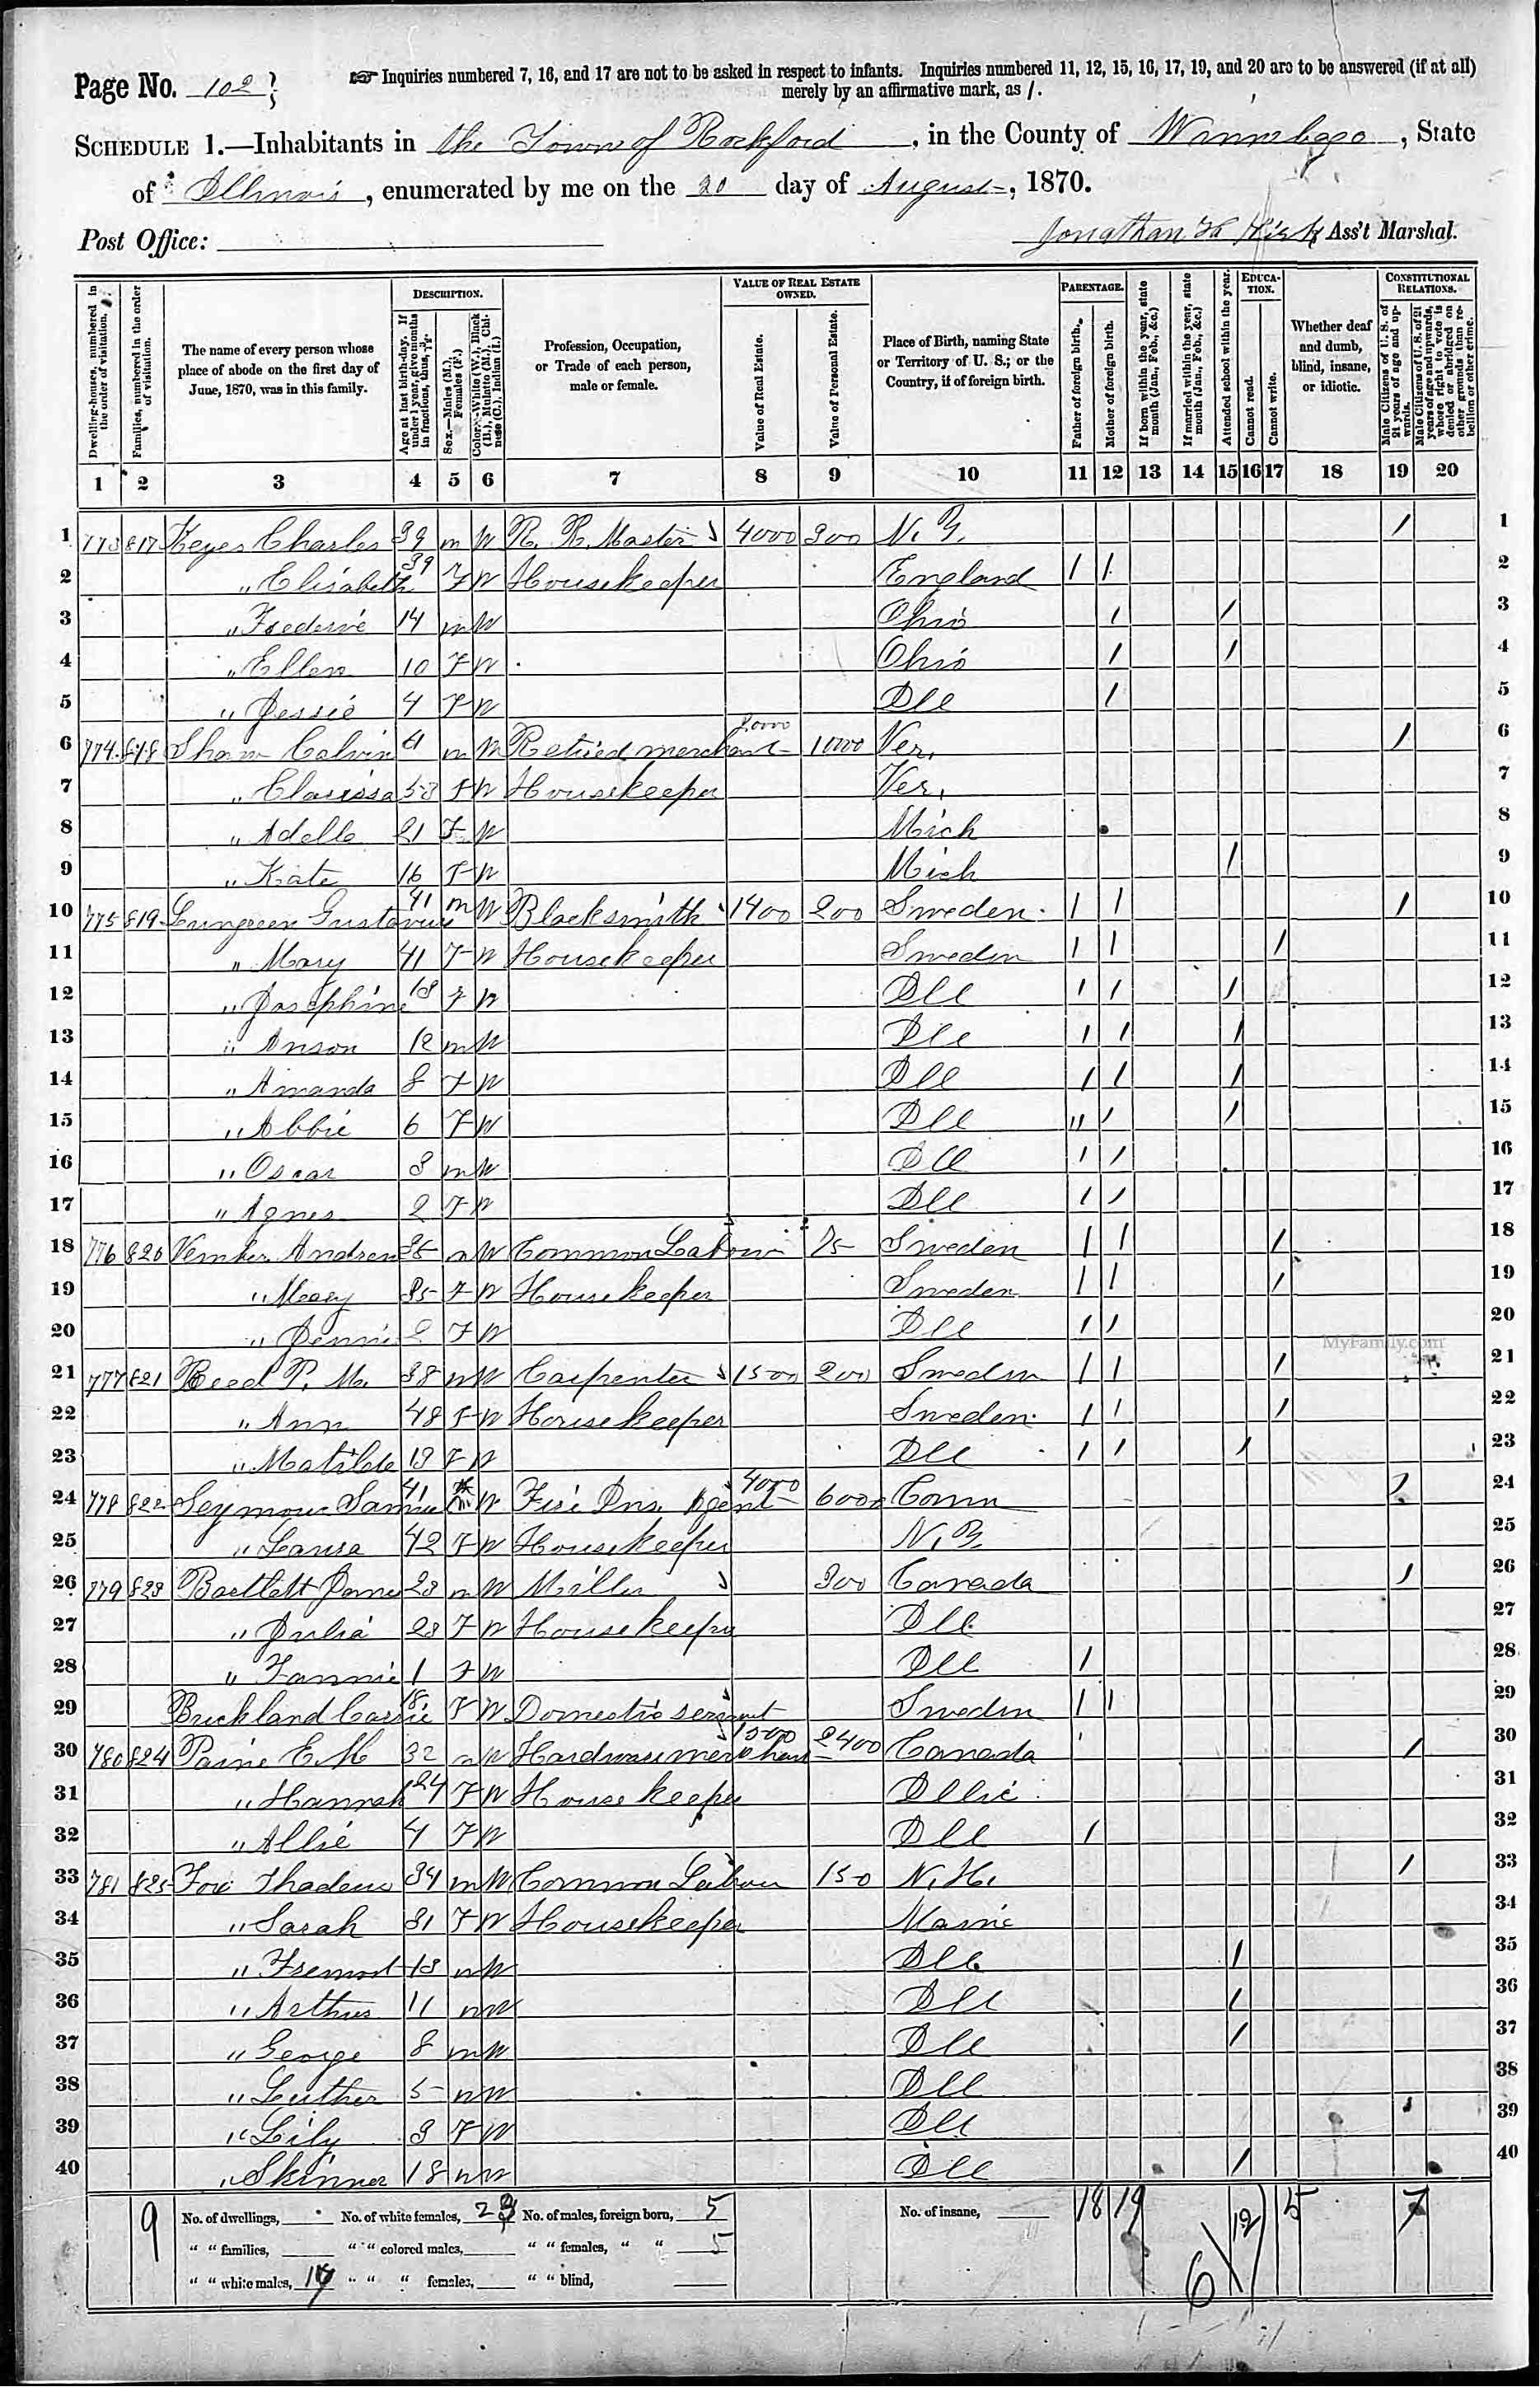 Page No. 102
Inquiries numbered 7, 16, and 17 are not to be asked in respect to infants. Inquiries numbered 11, 12, 15, 16, 17, 19, and 20 are to be answered (if at all)
merely by an affirmative mark, as /.
SCHEDULE 1.—Inhabitants in the Town of Rockford, in the County of Winnebago, State
of Illinois, enumerated by me on the 20 day of August, 1870.
Post Office:
Jonathan Ass't Marshal.
Dwelling-houses, numbered in the order of visitation.
Families, numbered in the order of visitation.
The name of every person whose place of abode on the first day of June, 1870, was in this family.
DESCRIPTION.
Age at last birth-day. If under 1 year, give months in fractions, thus, 3/12.
Sex.—Males (M.), Females (F.)
Color.—White (W.), Black (B.), Mulatto (M.), Chinese (C.), Indian (I.)
Profession, Occupation, or Trade of each person, male or female.
VALUE OF REAL ESTATE OWNED.
Value of Real Estate.
Value of Personal Estate.
Place of Birth, naming State or Territory of U. S.; or the Country, if of foreign birth.
PARENTAGE.
Father of foreign birth.
Mother of foreign birth.
If born within the year, state month (Jan., Feb., &c.)
If married within the year, state month (Jan., Feb., &c.)
Attended school within the year.
EDUCATION.
Cannot read.
Cannot write.
Whether deaf and dumb, blind, insane, or idiotic.
CONSTITUTIONAL RELATIONS.
Male Citizens of U. S. of 21 years of age and upwards.
Male Citizens of U. S. of 21 years of age and upwards, whose right to vote is denied or abridged on other grounds than rebellion or other crime.
1 2 3 4 5 6 7 8 9 10 11 12 13 14 15 16 17 18 19 20
1 773 817 Keyes Charles 39 m W R. R. Master 4000 300 N. Y. / 1
2 " Elisabeth 39 F W Housekeeper England / / 2
3 " 14 m W Ohio / / 3
4 " Ellen 10 F W Ohio / / 4
5 " Jessie 4 F W Ill / 5
6 774 818 Shaw Calvin 61 m W Retired merchant 1000 Ver. / 6
7 " Clarissa 53 F W Housekeeper Ver. 7
8 " Adelle 21 F W Mich 8
9 " Kate 16 F W Mich / 9
10 775 819 Lungreen Gustavus 41 m W Blacksmith 1400 200 Sweden / / / 10
11 " Mary 41 F W Housekeeper Sweden / / / 11
12 " Josephine F W Ill / / / 12
13 " Anson 12 m W Ill / / / 13
14 " Amanda 8 F W Ill / / / 14
15 " Abbie 6 F W Ill / / / 15
16 " Oscar m W Ill / / 16
17 " Agnes 2 F W Ill / / 17
18 776 820 Andrew m W Common Labour 75 Sweden / / / 18
19 " Mary 35 F W Housekeeper Sweden / / / 19
20 " Jennie 2 F W Ill / / 20
21 777 821 Reed P. M. 38 m W Carpenter 1500 200 Sweden / / / 21
22 " Ann 48 F W Housekeeper Sweden / / / 22
23 " Matilde 13 F W Ill / / / 23
24 778 822 Seymour Samuel 41 m W Fire Ins. Agent 4000 6000 Conn / 24
25 " Laura 42 F W Housekeeper N. Y. 25
26 779 823 Bartlett James 28 m W Miller 300 Canada / 26
27 " Julia 28 F W Housekeeper Ill. 27
28 " Fannie 1 F W Ill / 28
29 Brickland Carrie 18 F W Domestic servant Sweden / / 29
30 780 824 Paine E. M 32 m W Hardware merchant 1500 2400 Canada / / 30
31 " Hannah 24 F W Housekeeper 31
32 " Allie 4 F W Ill / 32
33 781 825 Fox Thadeus 34 m W Common Labour 150 N. H. / 33
34 " Sarah 31 F W Housekeeper Maine 34
35 " Fremont 13 m W Ill. / 35
36 " Arthur 11 m W Ill / 36
37 " George 8 m W Ill / 37
38 " Luther 5 m W Ill 38
39 " Lily 3 F W Ill 39
40 " Skinner 18 m W Ill / 40
MyFamily.com
9 No. of dwellings, No. of white females, 23 No. of males, foreign born, 5 No. of insane, 18 19 12 5 7
" " families, " " colored males, " " females, " " 5 6
" " white males, 17 " " " females, " " blind,